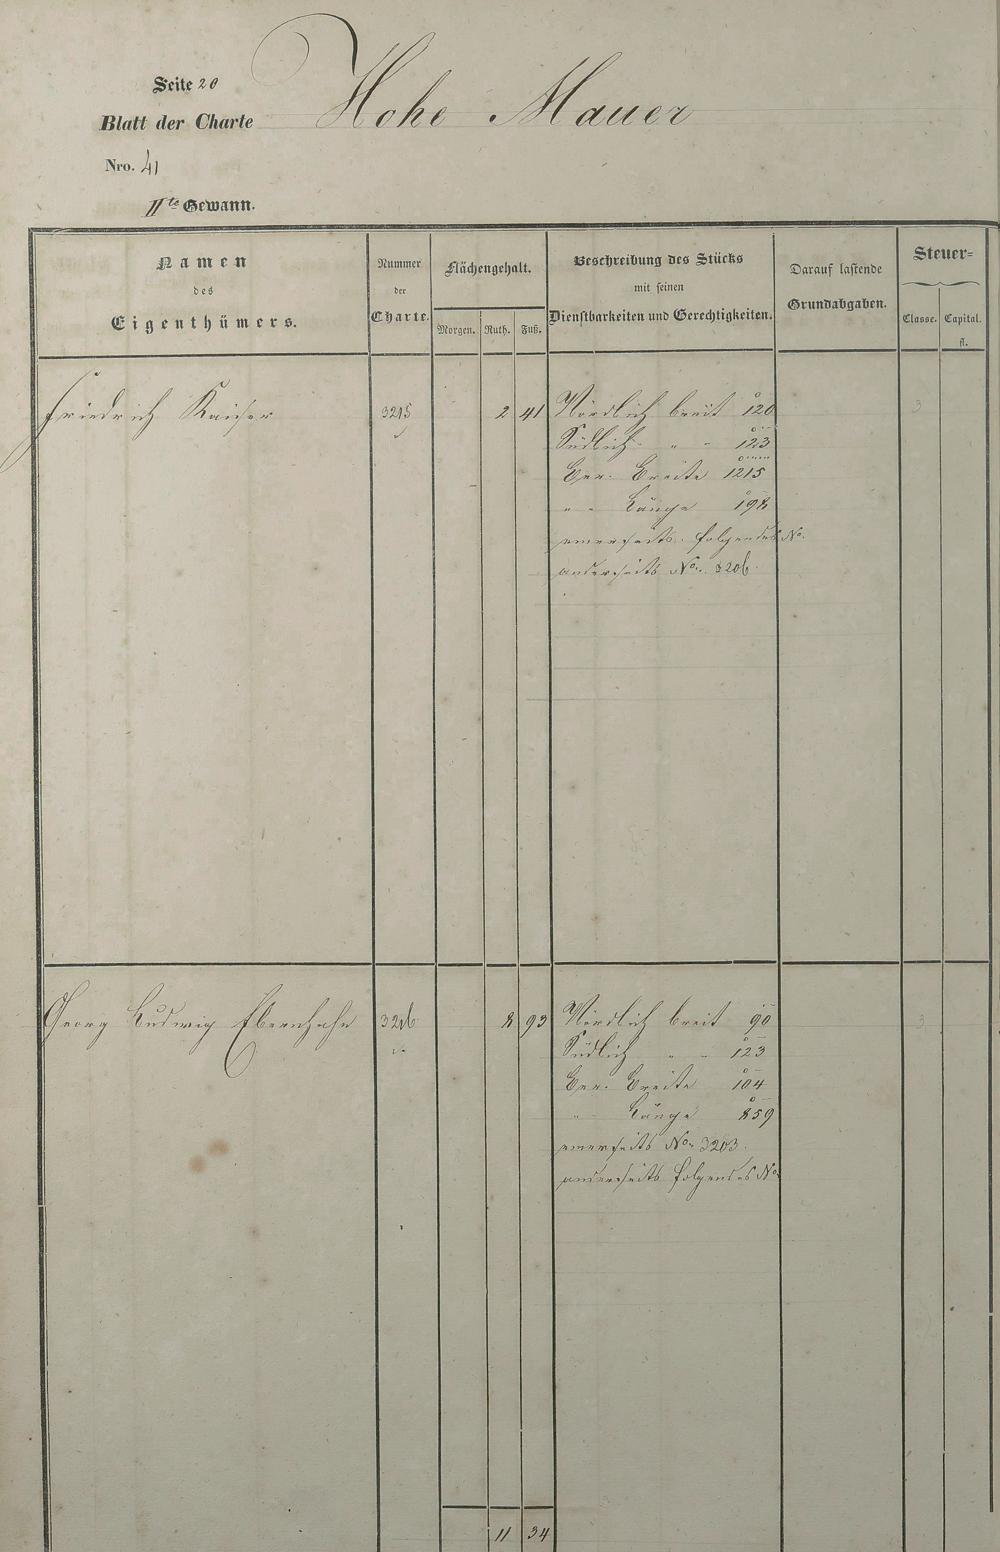 Seite 20
Hohe Mauer
Blatt der Charte
Nro. 41
IIte Gewann.
Namen
des
Eigenthümers.
Nummer
der
Charte.
Flächengehalt.
Morgen. Ruth. Fuß.
Beschreibung des Stücks
mit seinen
Dienstbarkeiten und Gerechtigkeiten.
Darauf lastende
Grundabgaben.
Steuer=
Classe. Capital.
fl.
Friedrich Kaiser 3215 2 41 Nördlich breit 120 3
Südlich " " 123
Ber. Breite 1215
" " Länge 198
einerseits folgendes No.
anderseits No. 3206.
Georg Ludwig Ebernhahn 3216 8 93 Nördlich breit 90 3
Südlich " " 123
Ber. Breite 104
" Länge 859
einerseits No. 3203.
anderseits folgendes No.
11 34